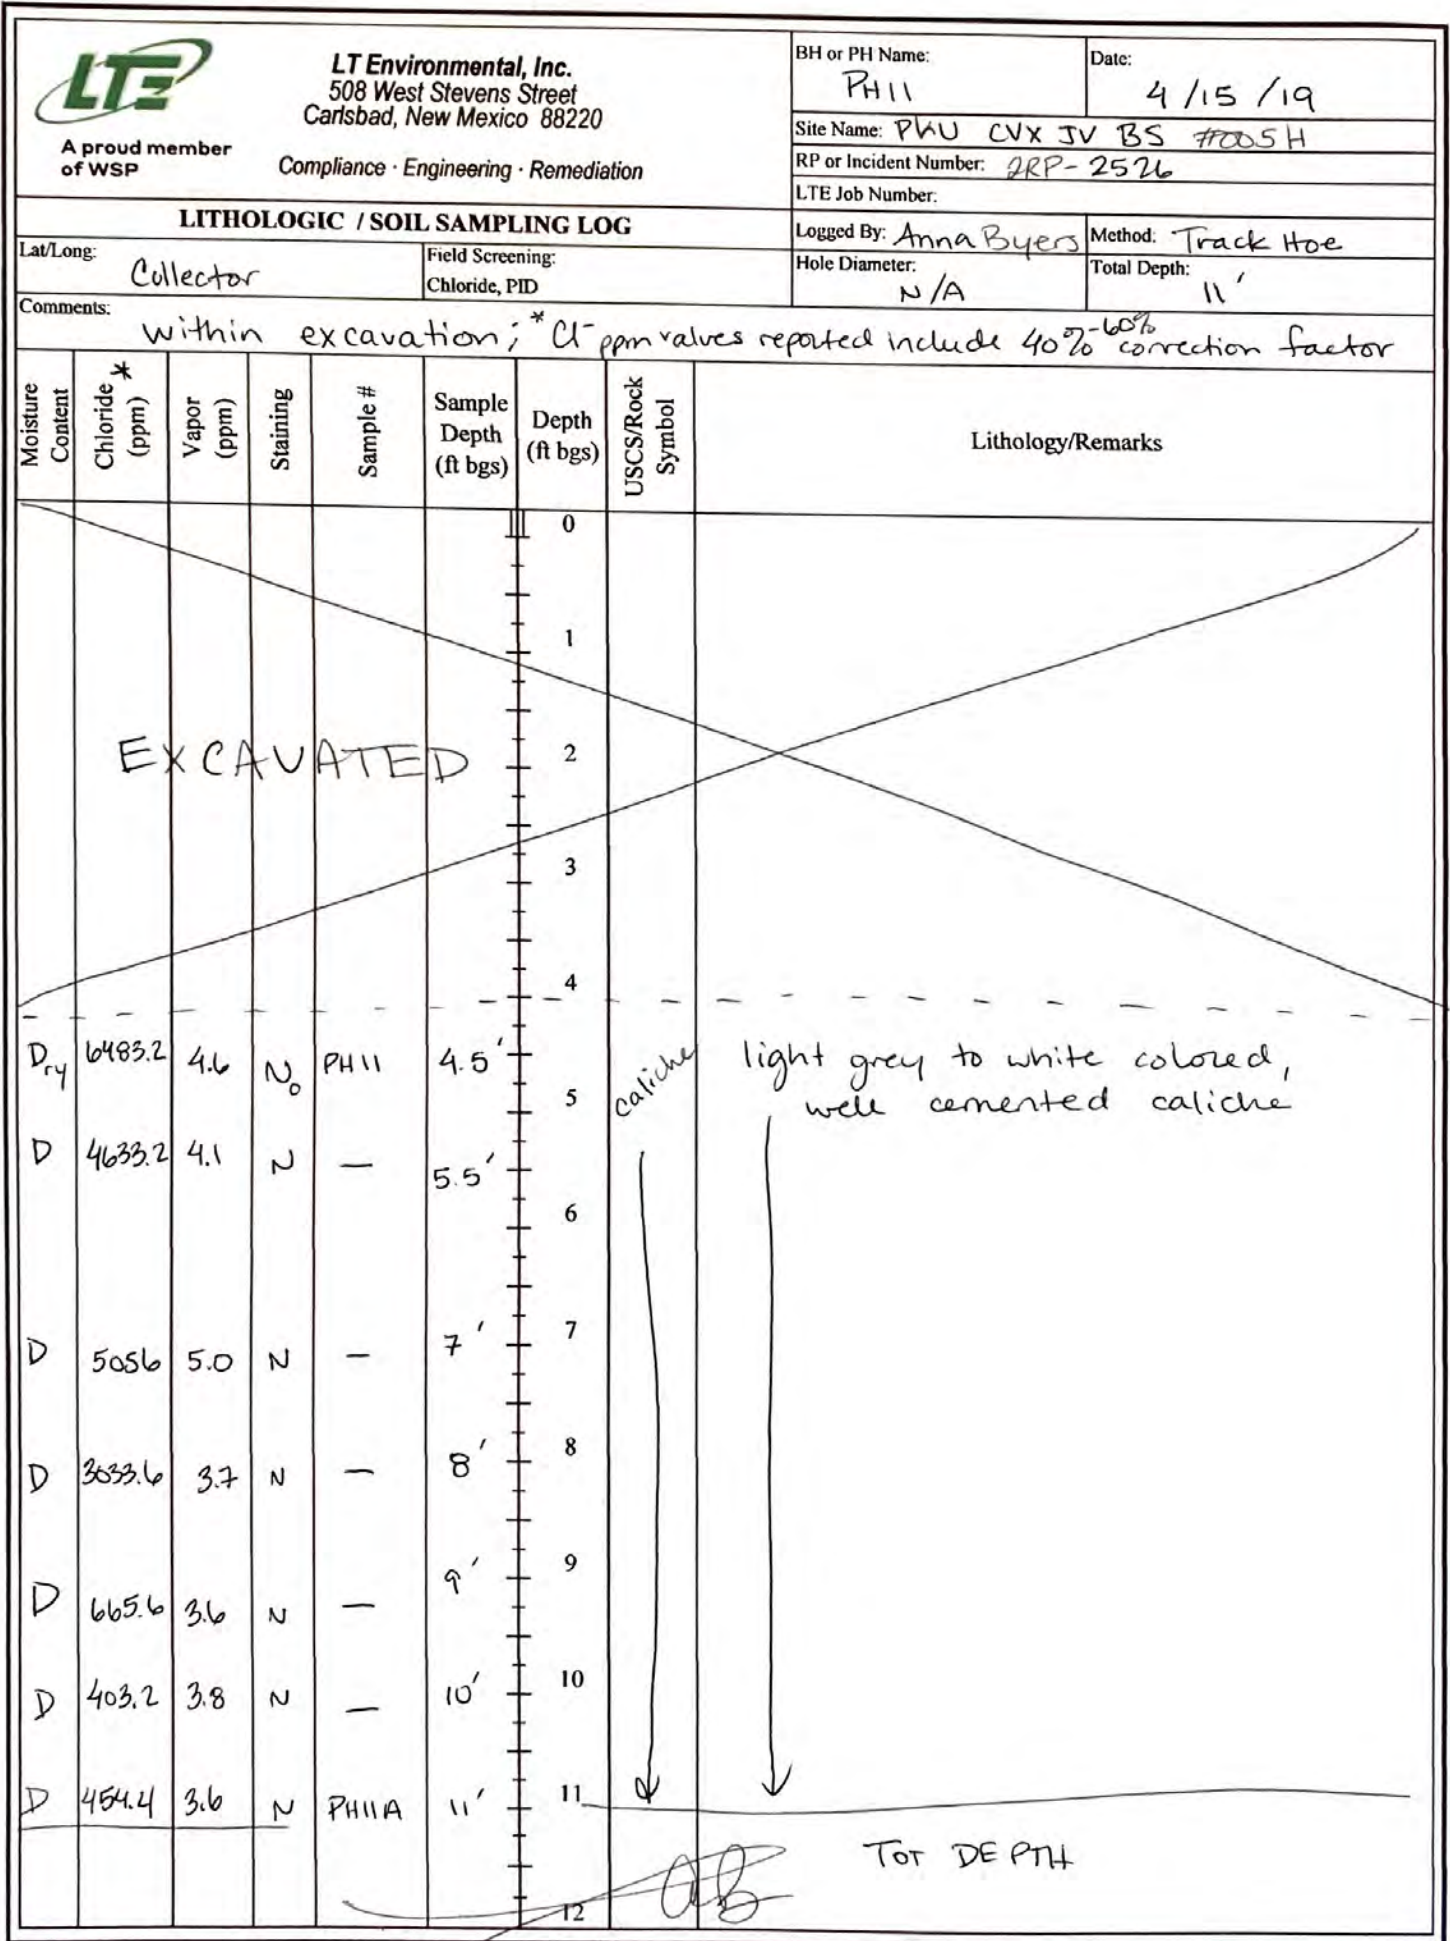 LTE
A proud member
of WSP
LT Environmental, Inc.
508 West Stevens Street
Carlsbad, New Mexico 88220
Compliance · Engineering · Remediation
BH or PH Name:
PH11
Date:
4/15/19
Site Name: PKU CVX JV BS #005H
RP or Incident Number: 2RP-2526
LTE Job Number:
LITHOLOGIC / SOIL SAMPLING LOG
Logged By: Anna Byers
Method: Track Hoe
Lat/Long:
Collector
Field Screening:
Chloride, PID
Hole Diameter:
N/A
Total Depth:
11'
Comments:
within excavation; *Cl- ppm values reported include 40%-60% correction factor
Moisture Content
Chloride * (ppm)
Vapor (ppm)
Staining
Sample #
Sample Depth (ft bgs)
Depth (ft bgs)
USCS/Rock Symbol
Lithology/Remarks
0
1
EXCAVATED 2
3
4
Dry 6483.2 4.6 No PH11 4.5' caliche light grey to white colored,
5 well cemented caliche
D 4633.2 4.1 N — 5.5'
6
D 5056 5.0 N — 7' 7
D 3033.6 3.7 N — 8' 8
D 665.6 3.6 N — 9' 9
D 403.2 3.8 N — 10' 10
D 454.4 3.6 N PH11A 11' 11
TOT DEPTH
ab
12